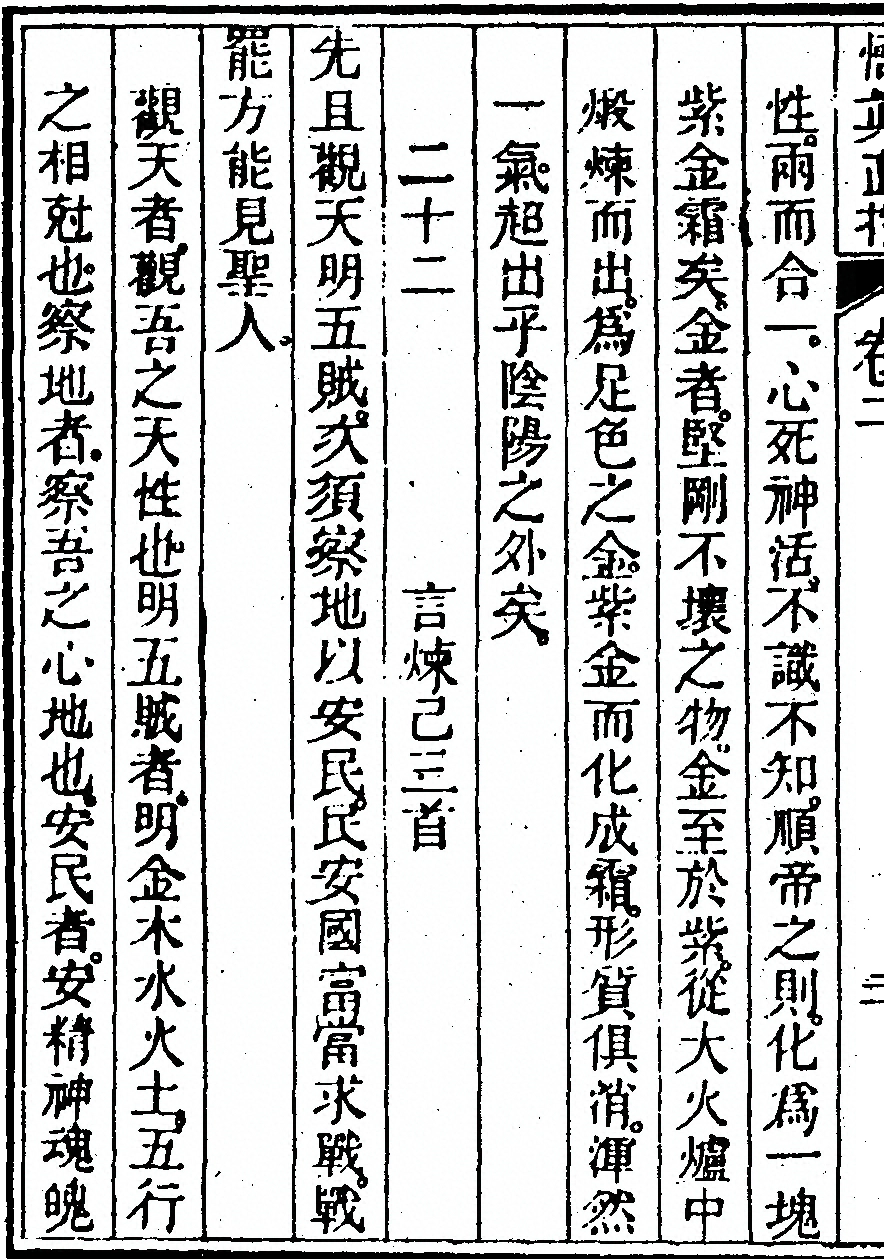 悟眞直指 卷二 二
性。兩而合一。心死神活。不識不知。順帝之則。化爲一塊
紫金霜矣。金者。堅剛不壞之物。金至於紫。從大火爐中
煅煉而出。爲足色之金。紫金而化成霜。形質俱消。渾然
一氣。超出乎陰陽之外矣。
二十二 言煉己三首
先且觀天明五賊。次須察地以安民。民安國富當求戰。戰
罷方能見聖人。
觀天者。觀吾之天性也。明五賊者。明金木水火土。五行
之相尅也。察地者。察吾之心地也。安民者。安精神魂魄